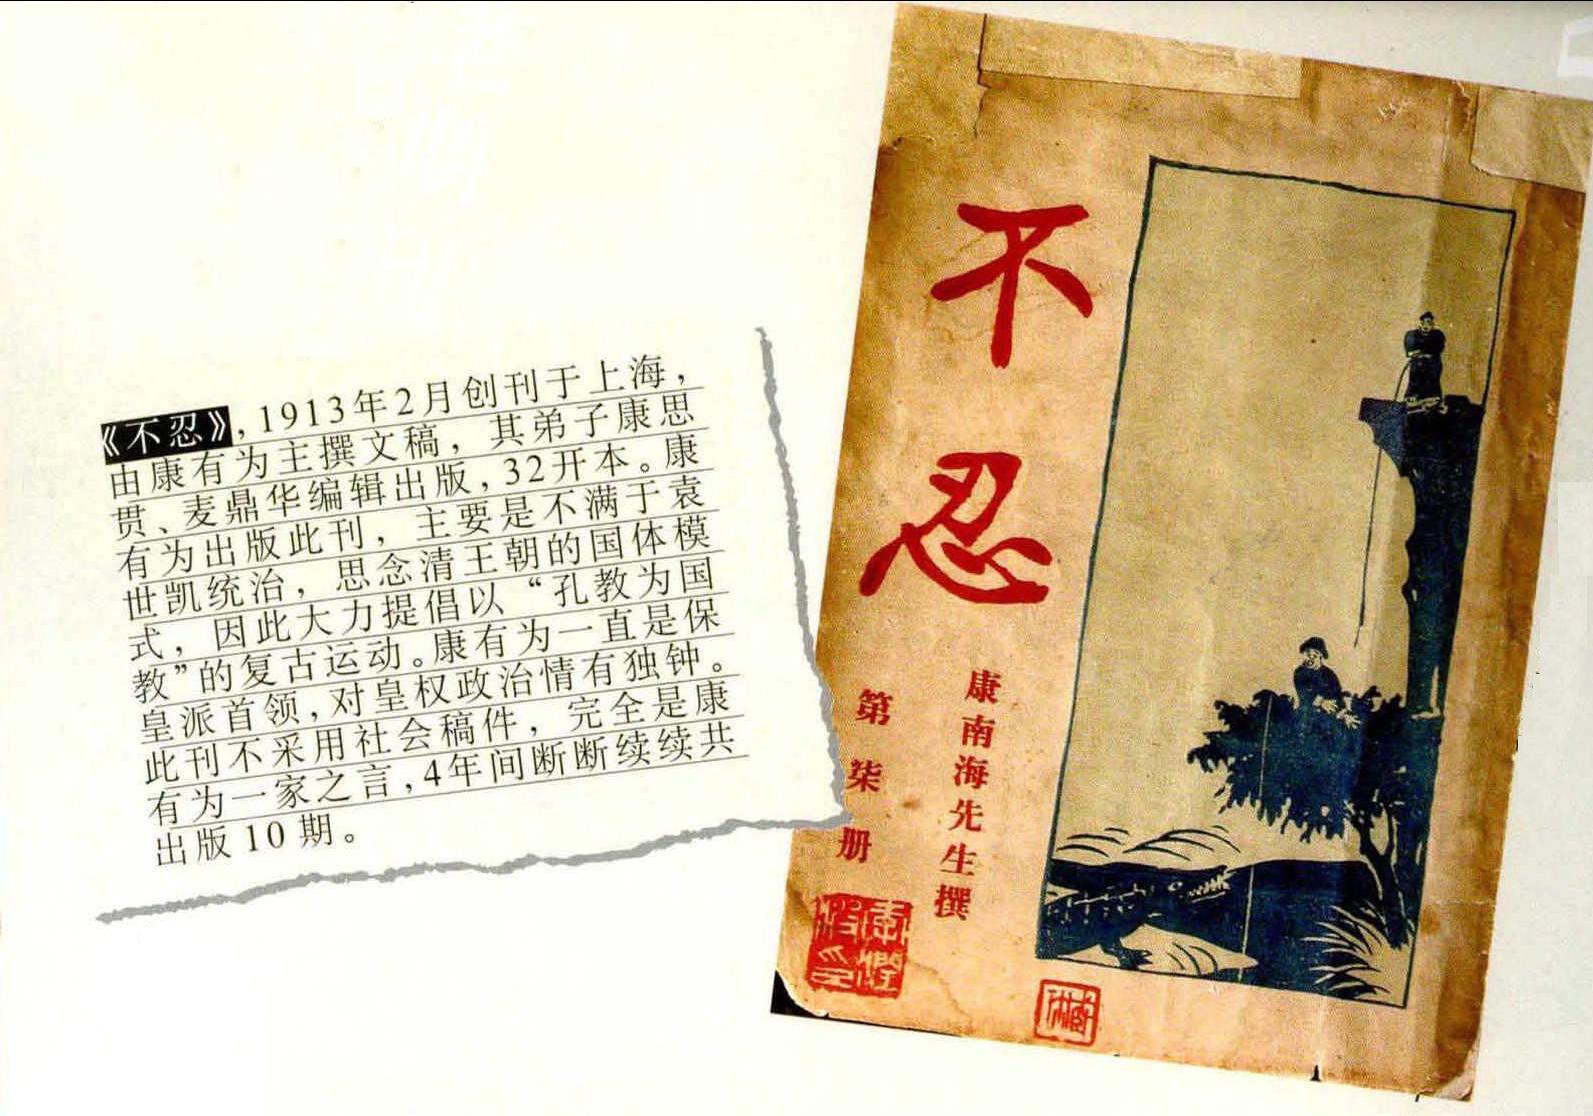 《不忍》,1913年2月创刊于上海,
由康有为主撰文稿,其弟子康思
贯、麦鼎华编辑出版,32开本。康
有为出版此刊,主要是不满于袁
世凯统治,思念清王朝的国体模
式,因此大力提倡以“孔教为国
教”的复古运动。康有为一直是保
皇派首领,对皇权政治情有独钟。
此刊不采用社会稿件,完全是康
有为一家之言,4年间断断续续共
出版10期。
不忍
康南海先生撰
第柒册